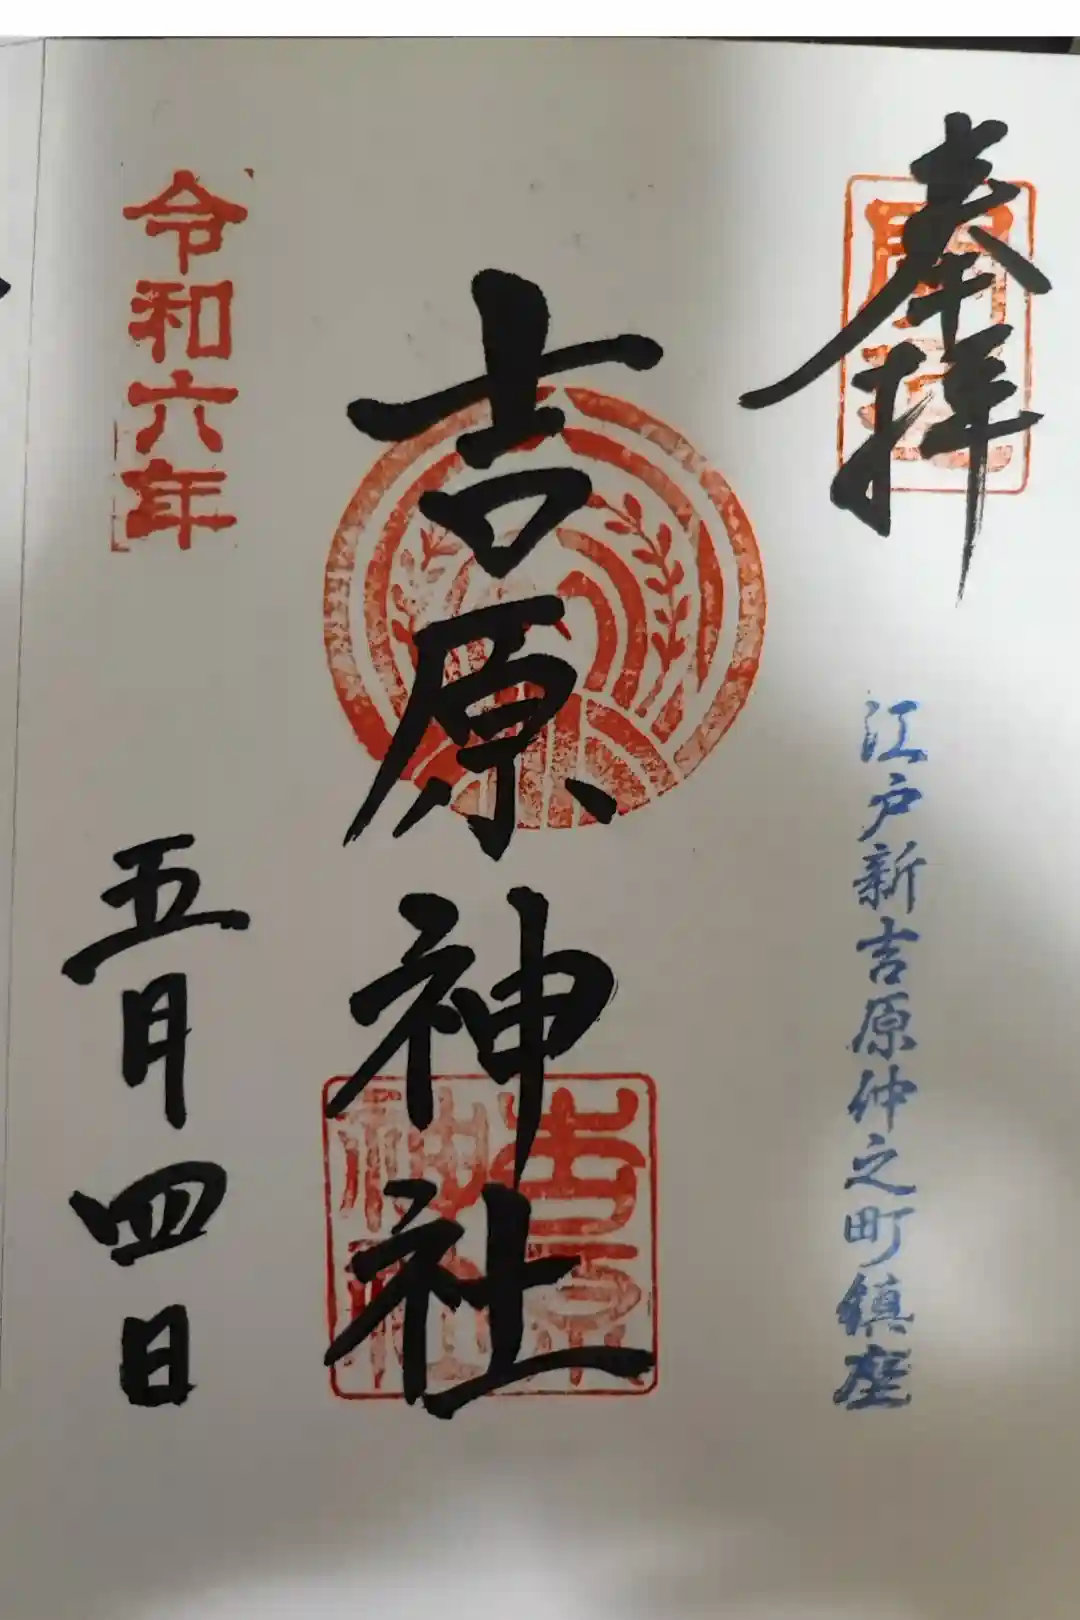 奉拝
開運
江戸新吉原仲之町鎮座
吉原神社
吉原
神社
令和六年
五月四日